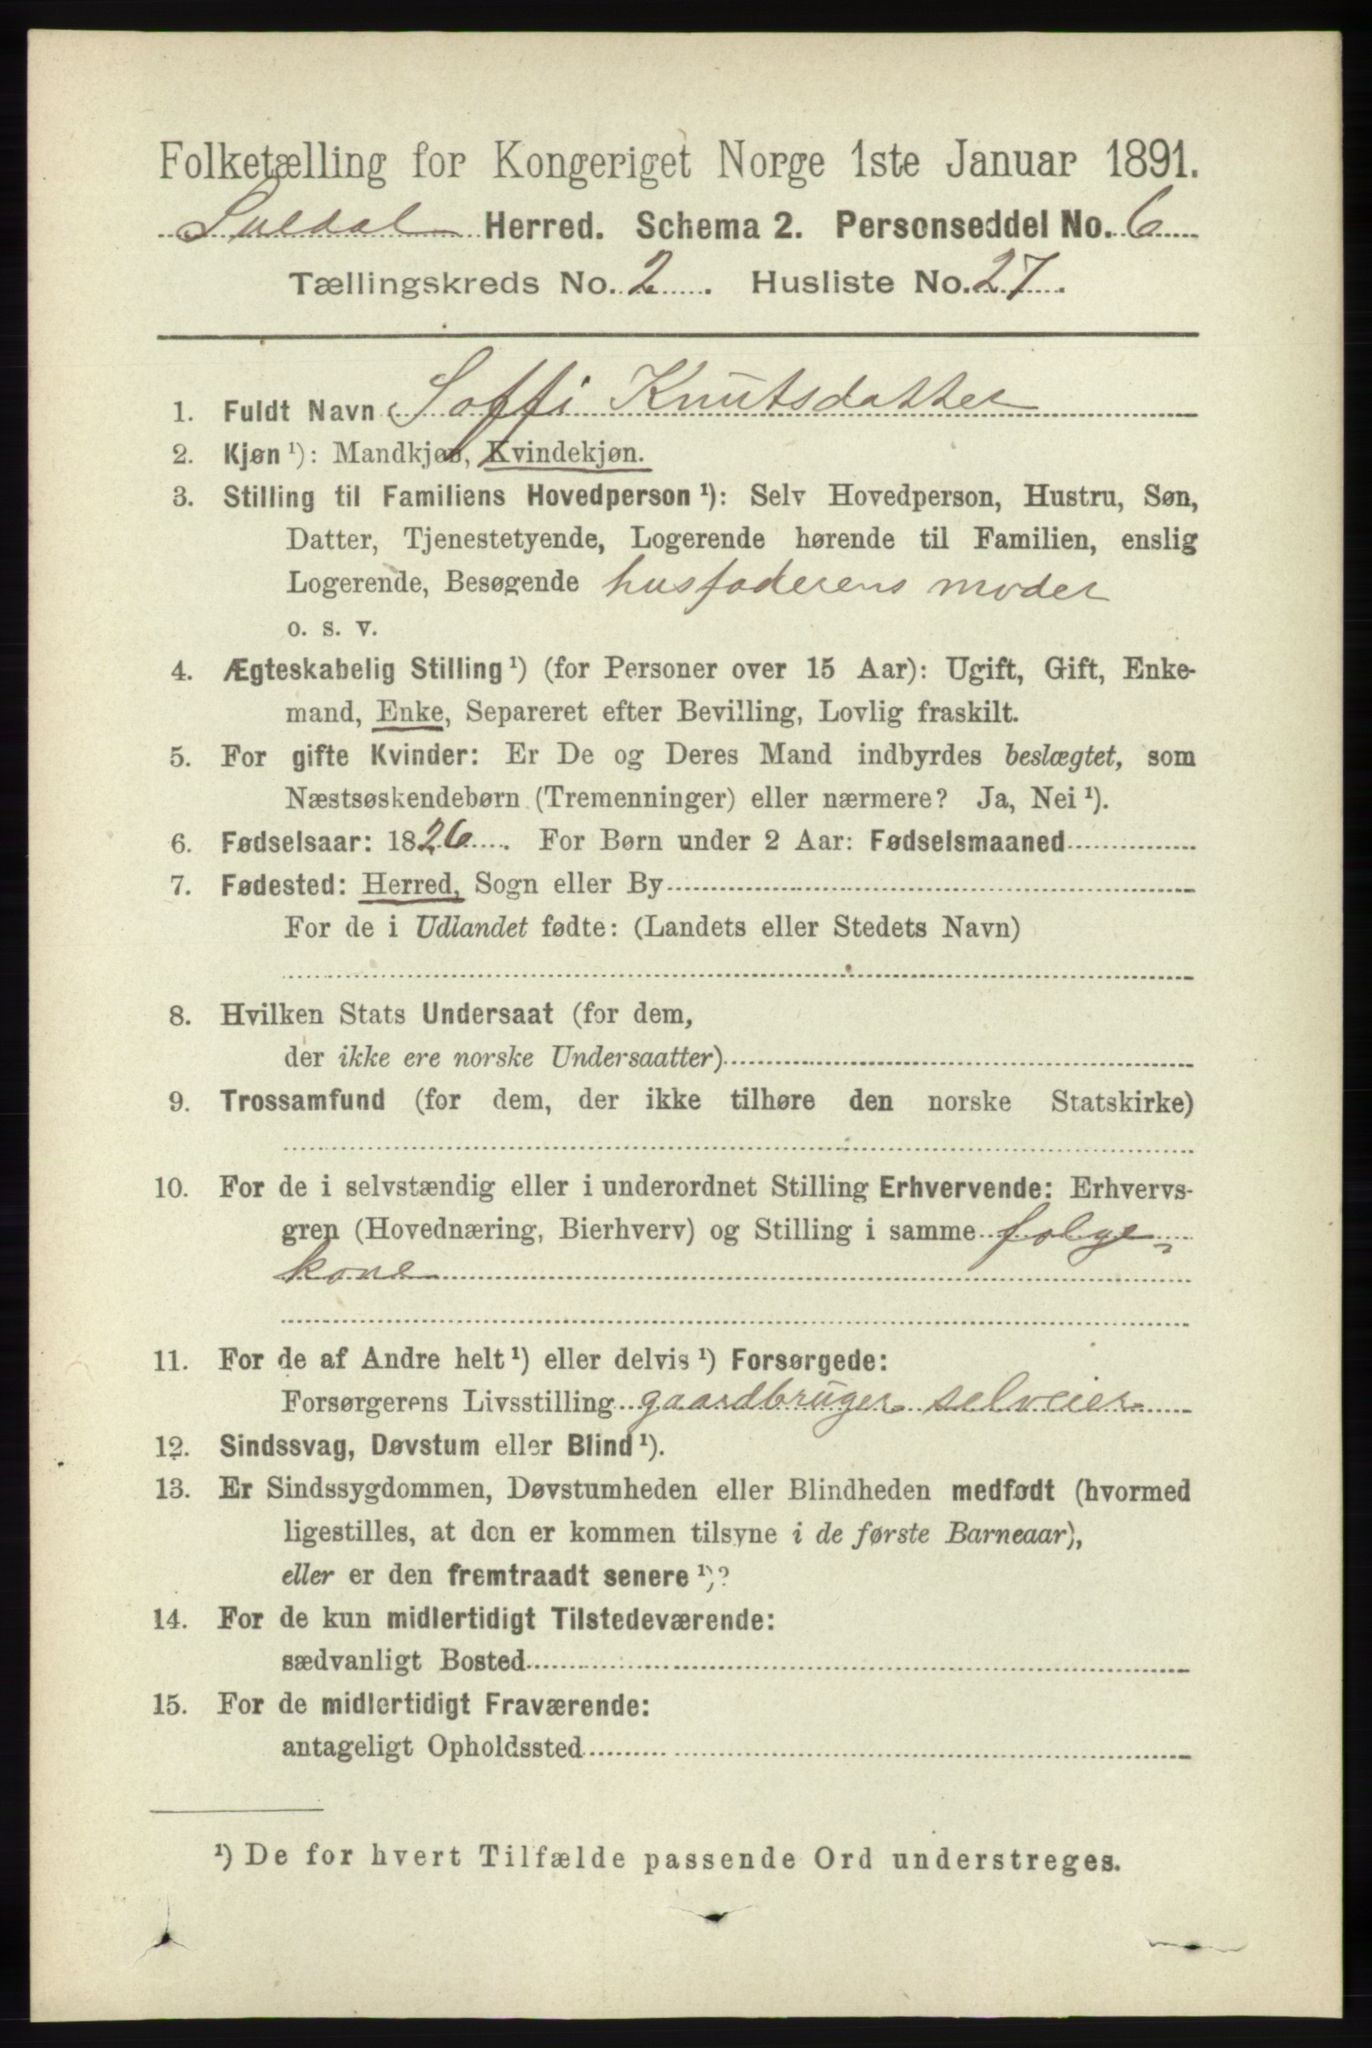 Folketælling for Kongeriget Norge 1ste Januar 1891.
Suldal Herred. Schema 2. Personseddel No. 6
Tællingskreds No. 2. Husliste No. 27.
1. Fuldt Navn Soffi Knutsdatter
2. Kjøn ¹): Mandkjøn, Kvindekjøn.
3. Stilling til Familiens Hovedperson ¹): Selv Hovedperson, Hustru, Søn,
Datter, Tjenestetyende, Logerende hørende til Familien, enslig
Logerende, Besøgende husfaderens moder
o. s. v.
4. Ægteskabelig Stilling ¹) (for Personer over 15 Aar): Ugift, Gift, Enke-
mand, Enke, Separeret efter Bevilling, Lovlig fraskilt.
5. For gifte Kvinder: Er De og Deres Mand indbyrdes beslægtet, som
Næstsøskendebørn (Tremenninger) eller nærmere? Ja, Nei ¹).
6. Fødselsaar: 1826. For Børn under 2 Aar: Fødselsmaaned
7. Fødested: Herred, Sogn eller By
For de i Udlandet fødte: (Landets eller Stedets Navn)
8. Hvilken Stats Undersaat (for dem,
der ikke ere norske Undersaatter)
9. Trossamfund (for dem, der ikke tilhøre den norske Statskirke)
10. For de i selvstændig eller i underordnet Stilling Erhvervende: Erhvervs-
gren (Hovednæring, Bierhverv) og Stilling i samme folge-
kone
11. For de af Andre helt ¹) eller delvis ¹) Forsørgede:
Forsørgerens Livsstilling gaardbruger selveier
12. Sindssvag, Døvstum eller Blind ¹).
13. Er Sindssygdommen, Døvstumheden eller Blindheden medfødt (hvormed
ligestilles, at den er kommen tilsyne i de første Barneaar),
eller er den fremtraadt senere ¹)?
14. For de kun midlertidigt Tilstedeværende:
sædvanligt Bosted
15. For de midlertidigt Fraværende:
antageligt Opholdssted
¹) De for hvert Tilfælde passende Ord understreges.